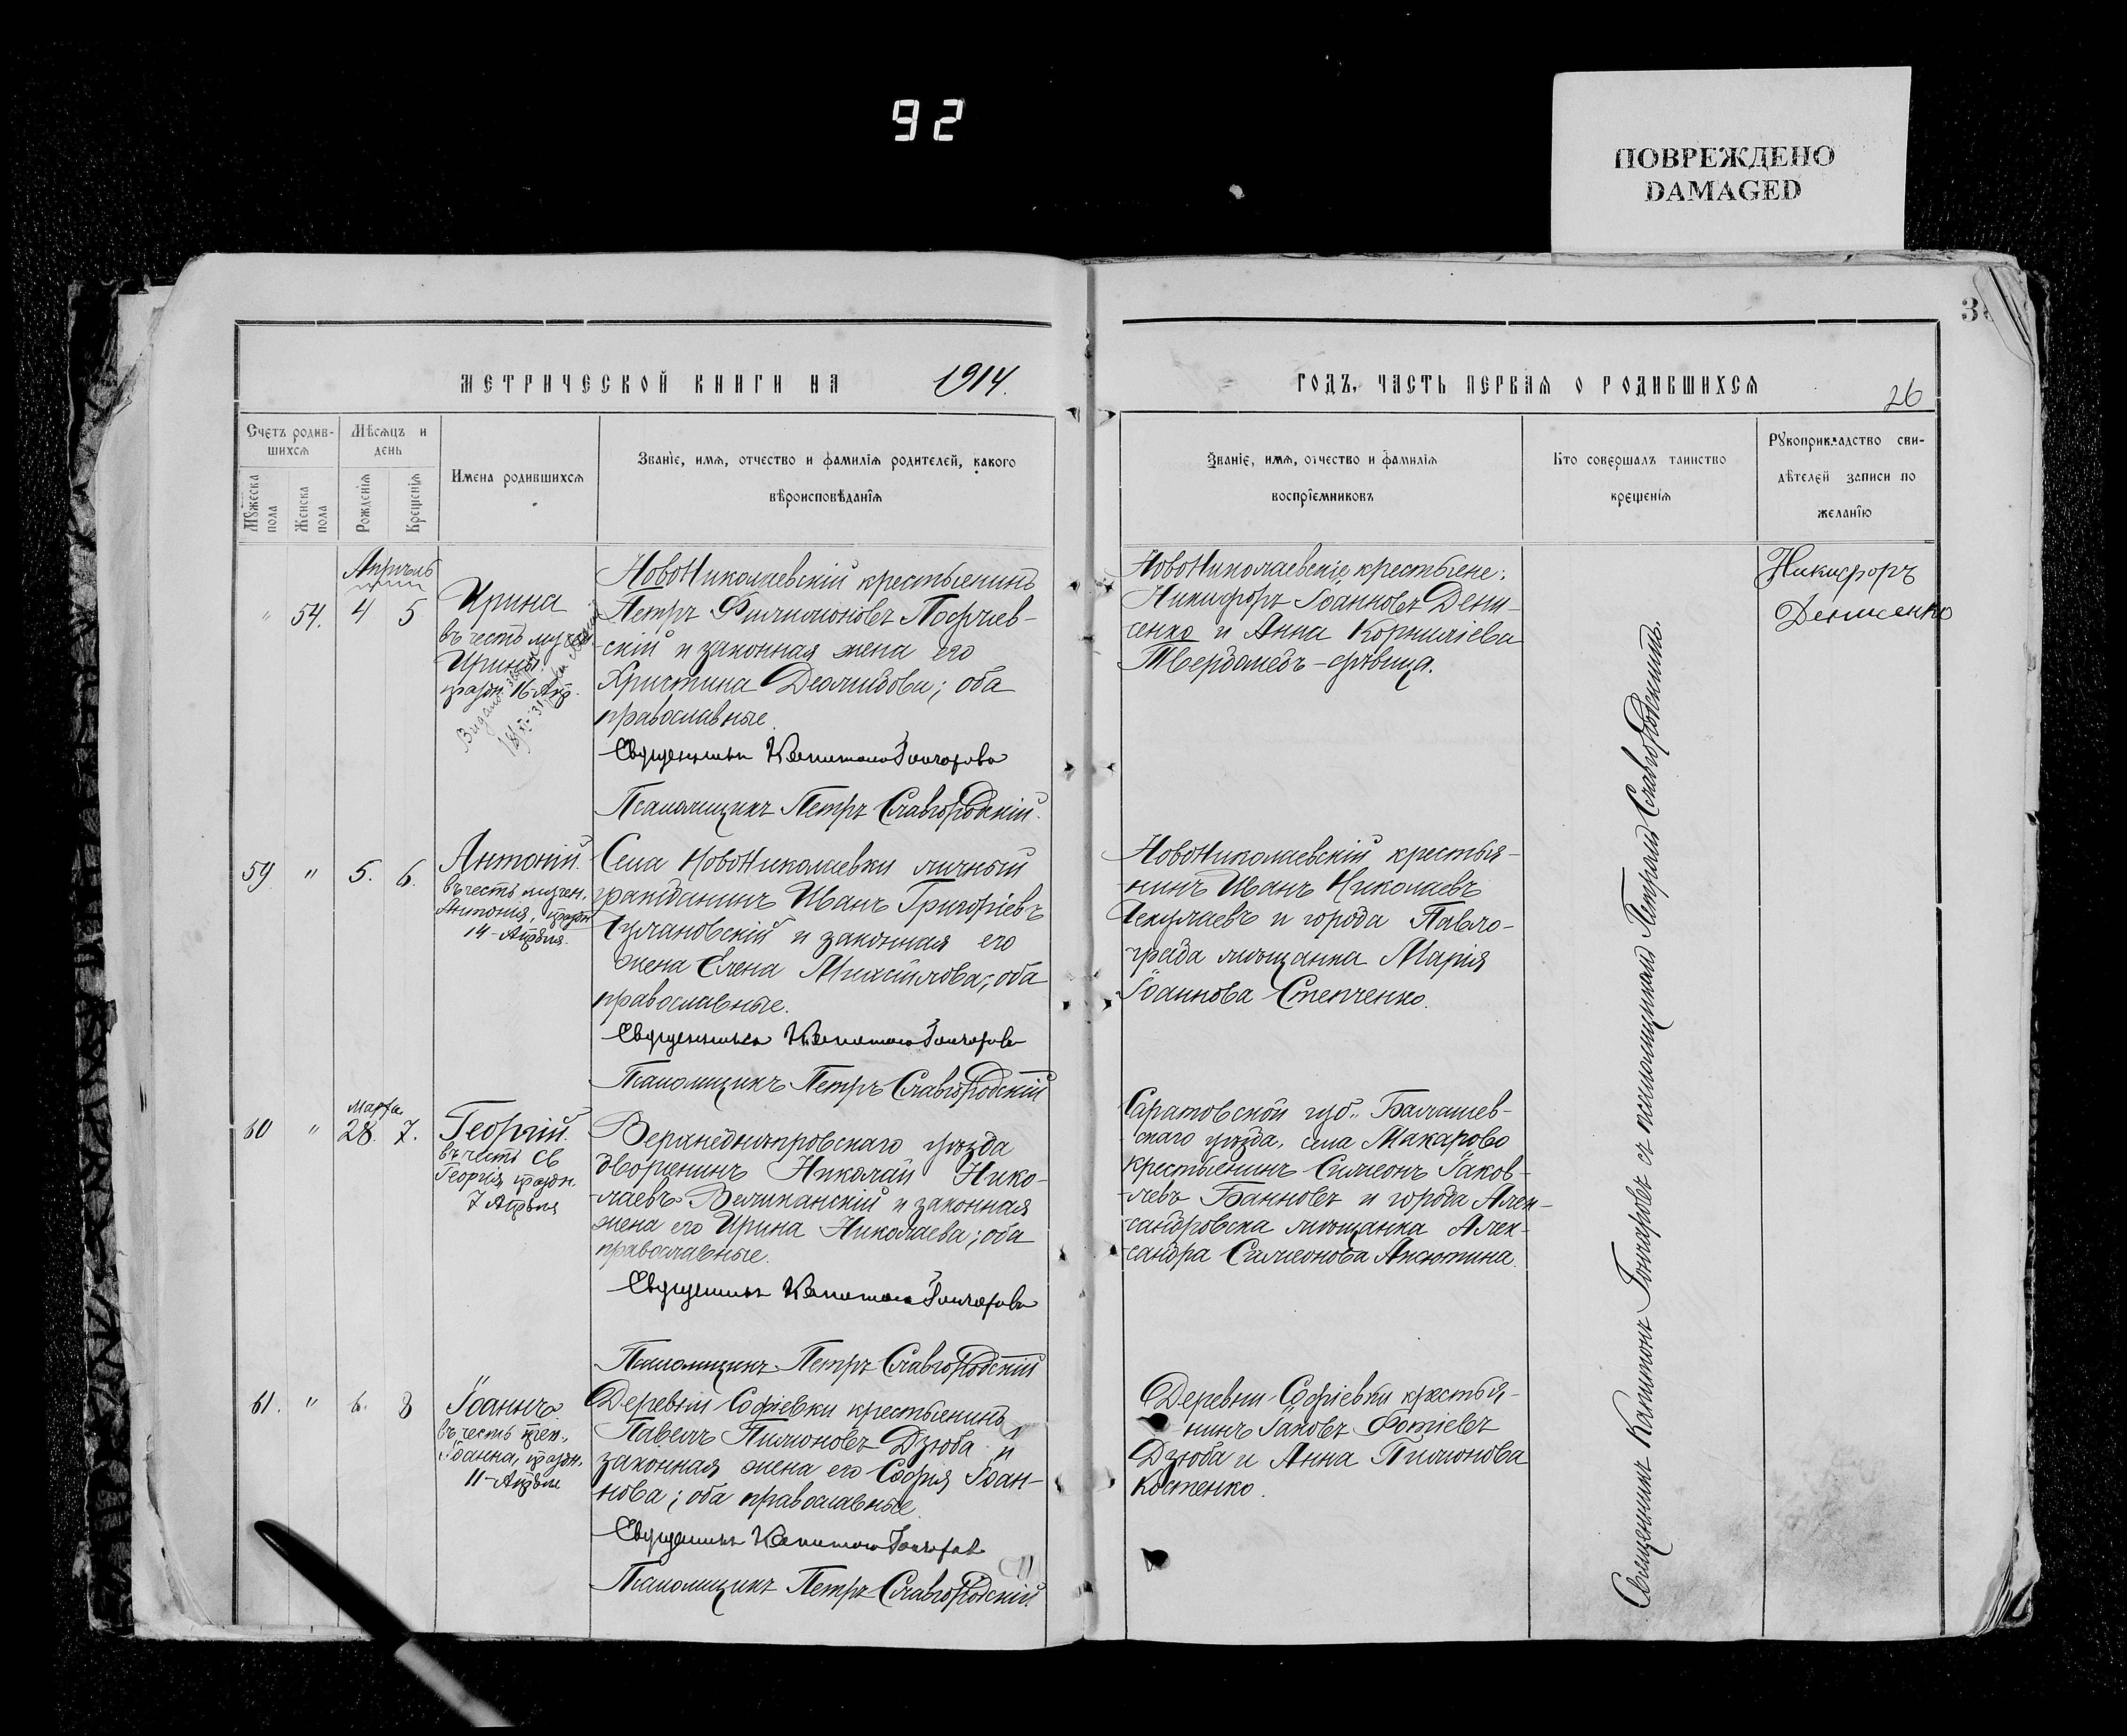 92
ПОВРЕЖДЕНО
DAMAGED
МЕТРИЧЕСКОЙ КНИГИ НА 1914.
ГОДЪ, ЧАСТЬ ПЕРВАЯ О РОДИВШИХСЯ
26
Счетъ родив-
шихся
Мужеска пола
Женска пола
Мѣсяцъ и
день
Рожденія
Крещенія
Имена родившихся
Званіе, имя, отчество и фамилія родителей, какого
вѣроисповѣданія
Званіе, имя, отчество и фамилія
воспріемниковъ
Кто совершалъ таинство
крещенія
Рукоприкладство сви-
дѣтелей записи по
желанію
Апрѣль
" 54. 4 5
Ирина
въ честь мучен.
Ирины
праздн. 16 Апр.
НовоНиколаевскій крестьянинъ
Петръ Филимоновъ
скій и законная жена его
Христина Деомидова; оба
православные.
Священникъ Капитонъ Гончаровъ
Псаломщикъ Петръ Славгородскій.
НовоНиколаевскіе крестьяне:
Никифоръ Іоанновъ Дени-
сенко и Анна Корниліева
Твердомедъ-
Никифоръ
Денисенко
59 " 5. 6.
Антоній.
въ честь мучен.
Антонія, праздн.
14-Апрѣля.
Села НовоНиколаевки личный
гражданинъ Иванъ Григоріевъ
и законная его
жена Елена Михайлова; оба
православные.
Священникъ Капитонъ Гончаровъ
Псаломщикъ Петръ Славгородскій
НовоНиколаевскій крестья-
нинъ Иванъ Николаевъ
и города Павло-
града мѣщанка Марія
Іоаннова Степченко.
60 " Марта 28. 7.
Георгій.
въ честь Св
Георгія, праздн.
7 Апрѣля
Верхнеднѣпровскаго уѣзда
дворянинъ Николай Нико-
лаевъ Великанскій и законная
жена его Ирина Николаева; оба
православные.
Священникъ Капитонъ Гончаровъ
Псаломщикъ Петръ Славгородскій
Саратовской губ., Балашев-
скаго уѣзда, села Макарово
крестьянинъ Симеонъ Іаков-
левъ Банновъ и города Алек-
сандровска мѣщанка Алек-
сандра Симеонова Аксютина.
61. " 6. 8
Іоаннъ
въ честь преп.
Іоанна, праздн.
11-Апрѣля
Деревни Софіевки крестьянинъ
Павелъ Пимоновъ Дзюба и
законная жена его Софія Іоан-
нова; оба православные.
Священникъ Капитонъ Гончаровъ
Псаломщикъ Петръ Славгородскій.
Деревни Софіевки крестья-
нинъ Іаковъ Фотіевъ
Дзюба и Анна Пимонова
Костенко.
Священникъ Капитонъ Гончаровъ съ псаломщикомъ Петромъ Славгородскимъ.